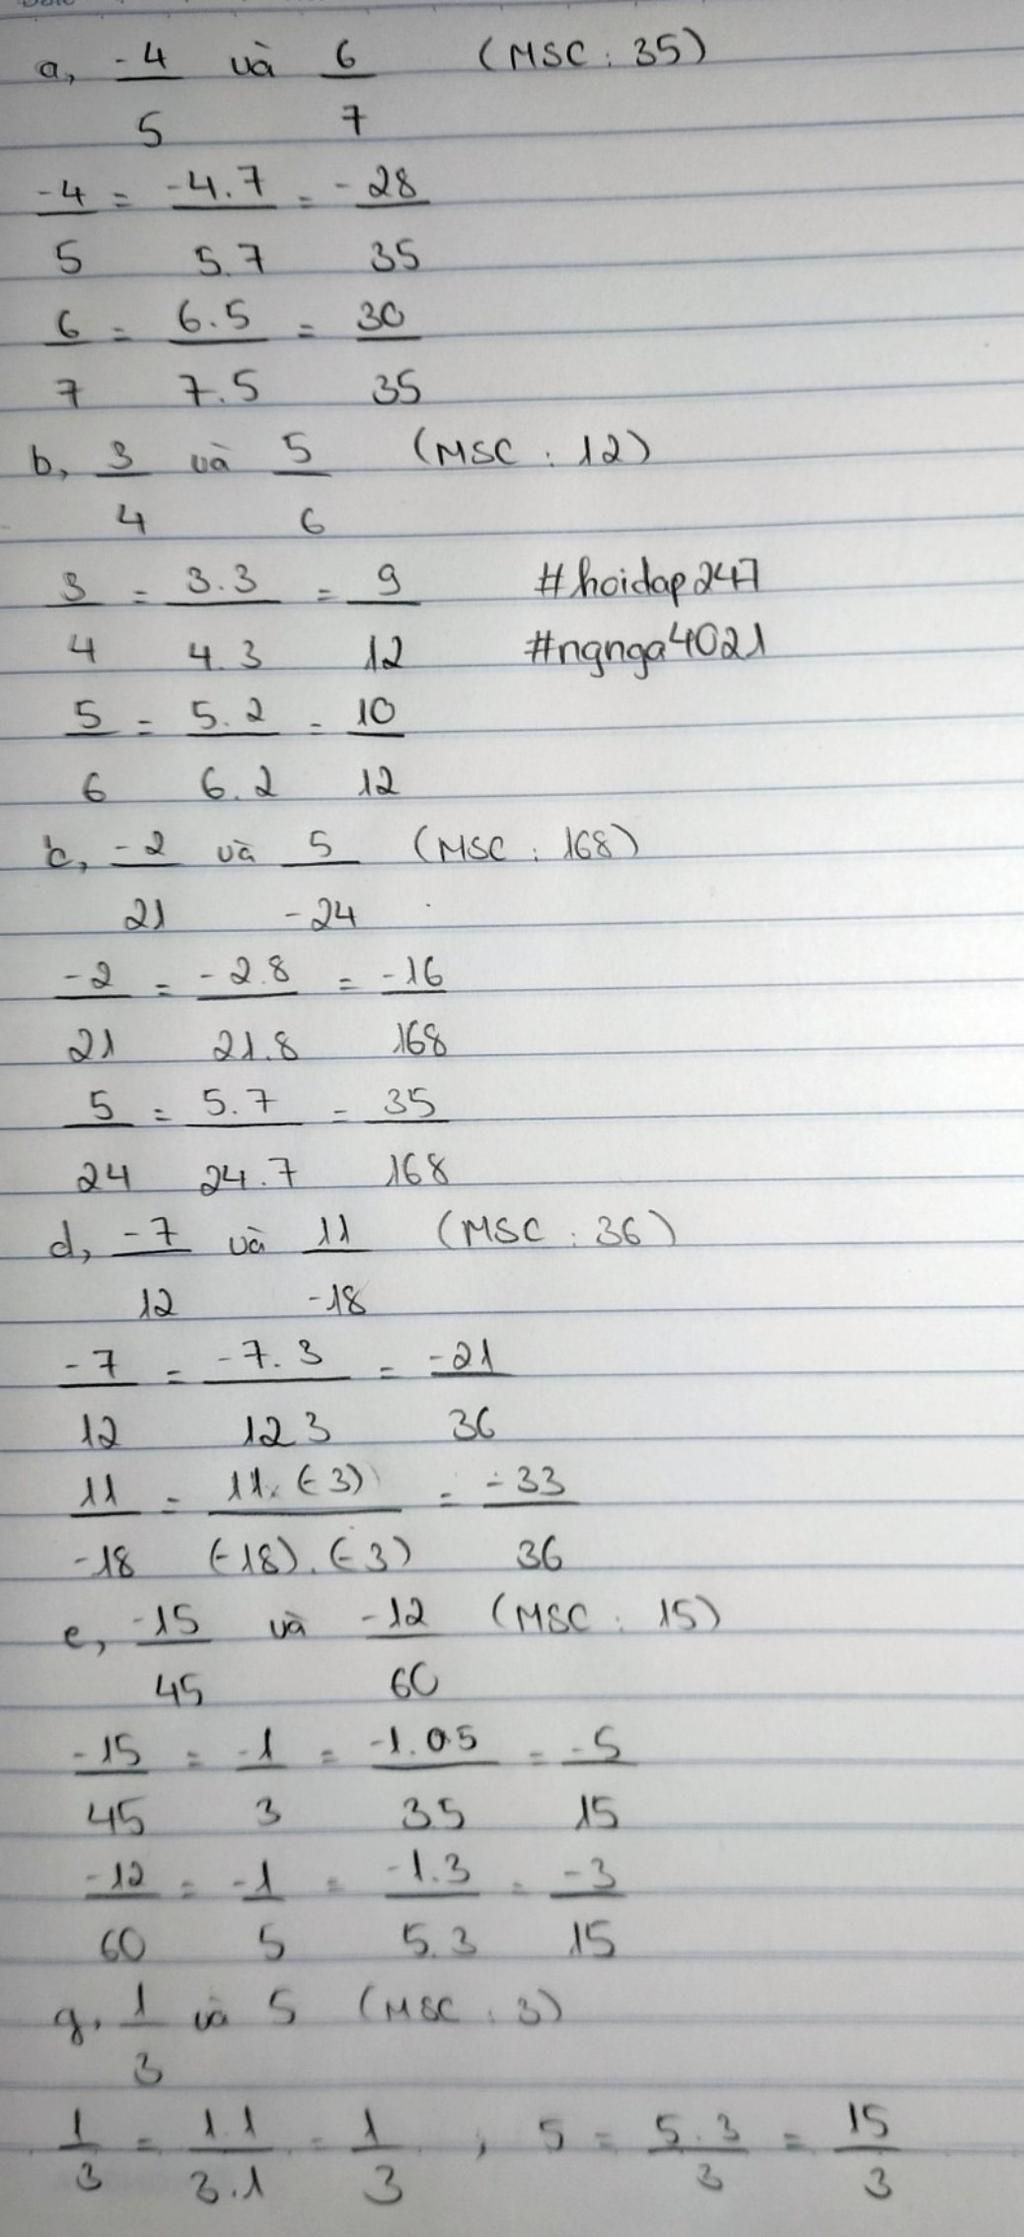 a, -4/5 và 6/7 (MSC: 35)
-4/5 = -4.7/5.7 = -28/35
6/7 = 6.5/7.5 = 30/35
b, 3/4 và 5/6 (MSC: 12)
3/4 = 3.3/4.3 = 9/12 #hoidap247
#ngnga4021
5/6 = 5.2/6.2 = 10/12
c, -2/21 và 5/-24 (MSC: 168)
-2/21 = -2.8/21.8 = -16/168
5/24 = 5.7/24.7 = 35/168
d, -7/12 và 11/-18 (MSC: 36)
-7/12 = -7.3/12 3 = -21/36
11/-18 = 11.(-3)/(-18).(-3) = -33/36
e, -15/45 và -12/60 (MSC: 15)
-15/45 = -1/3 = -1.5/3.5 = -5/15
-12/60 = -1/5 = -1.3/5.3 = -3/15
g, 1/3 và 5 (MSC: 3)
1/3 = 1.1/3.1 = 1/3 ; 5 = 5.3/3 = 15/3